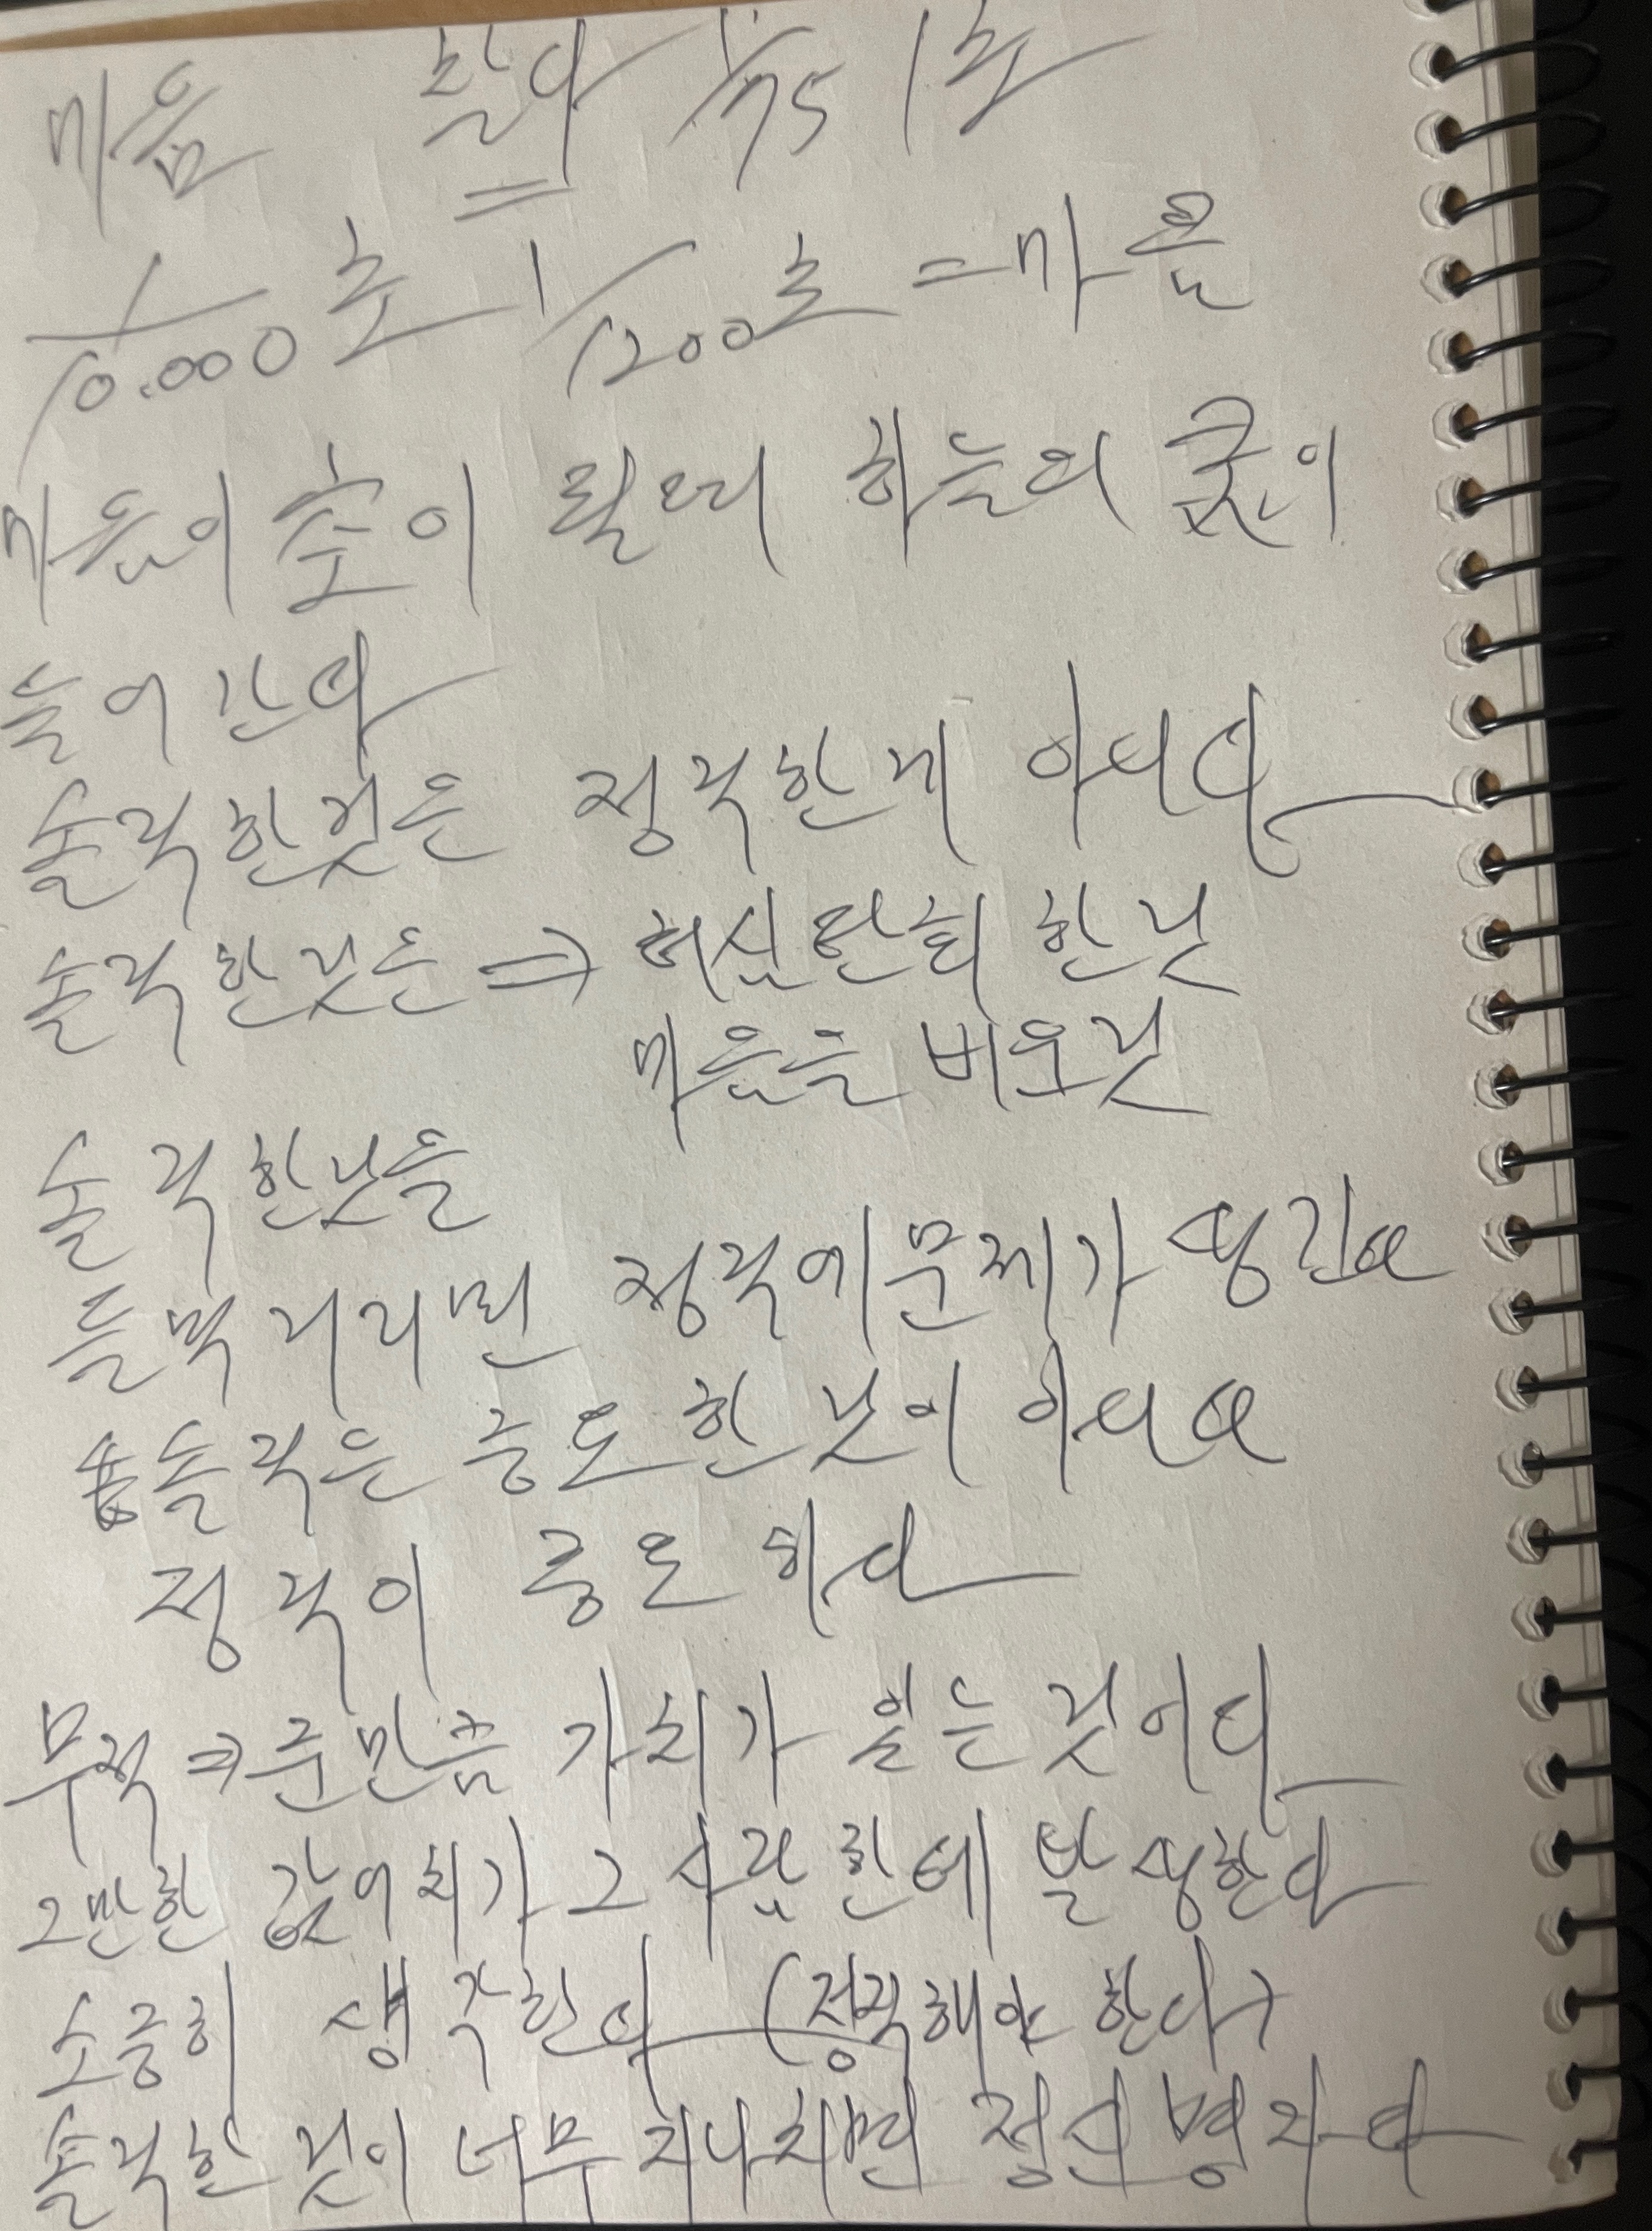 마음 찰나 1/75 1초
1/10.000초 1/1200초 = 마음
마음이 춤이 될때 하늘의 굿이
들어간다
솔직한것은 정직한게 아니다
솔직한것은 ⇒ 허심탄회 한것
마음을 비운것
솔직한것을
들먹거리면 정직에 문제가 생긴요
솔직은 중요한 것이 아니요
정직이 중요하다
무직 ⇒ 준만큼 가치가 있는 것이다
그만한 값어치가 그 사람 한테 발생한다
소중히 생각한다 (정직해야 한다)
솔직한 것이 너무 지나치면 정신병자다